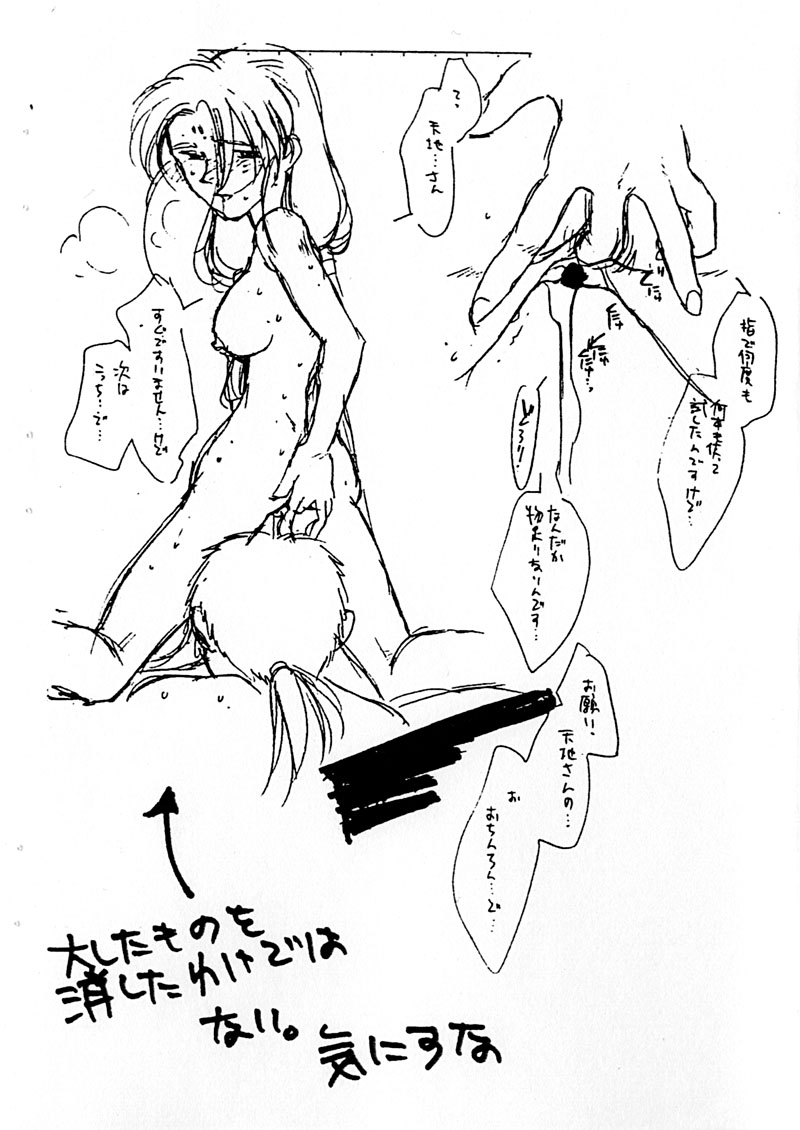 て、
天地…さん
指で何度も
何本も使って
試したんですけど…
なんだか
物足りないんです…
すぐですいません…けど
次は
こっち…で…
お願い、
天地さんの…
お
おちんちん…で…
大したものを
消したわけでは
ない。気にすな